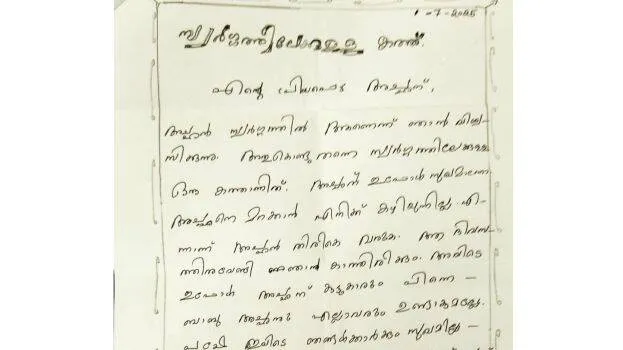 1-7-2025
സ്വർഗ്ഗത്തിലേക്കുള്ള കത്ത്.
എന്റെ പ്രിയപ്പെട്ട അച്ഛന്,
അച്ഛൻ സ്വർഗ്ഗത്തിൽ ആണെന്ന് ഞാൻ വിശ്വ-
സിക്കുന്നു. അതുകൊണ്ടുതന്നെ സ്വർഗ്ഗത്തിലേക്കുള്ള
ഒരു കത്താണിത്. അച്ഛന് ഇപ്പോൾ സുഖമാണോ
അച്ഛനെ മറക്കാൻ എനിക്ക് കഴിയുന്നില്ല. എ-
ന്നാണ് അച്ഛൻ തിരികെ വരുക. ആ ദിവസ-
ത്തിനുവേണ്ടി ഞാൻ കാത്തിരിക്കും. അവിടെ
ഇപ്പോൾ അച്ഛന് കൂട്ടുകാരും പിന്നെ -
ബാബു അച്ഛനും എല്ലാവരും ഉണ്ടാകുമല്ലോ.
പക്ഷേ ഇവിടെ ഞങ്ങൾക്കാർക്കും സുഖമില്ല -